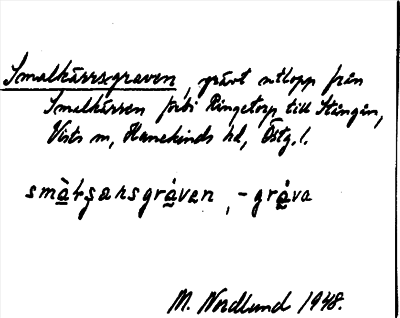 Smalkärrsgraven, grävt utlopp från
Smalkärren förbi Ringetorp till Stångån,
Vists sn, Hanekinds hd, Östg. l.
smàlʂærsgráven, -gráva
M. Nordlund 1948.